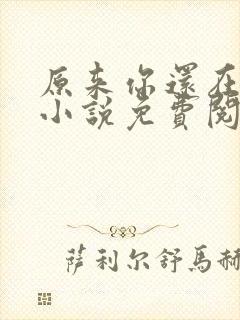 原来你還在
小說免費閱
萨利尔舒馬赫